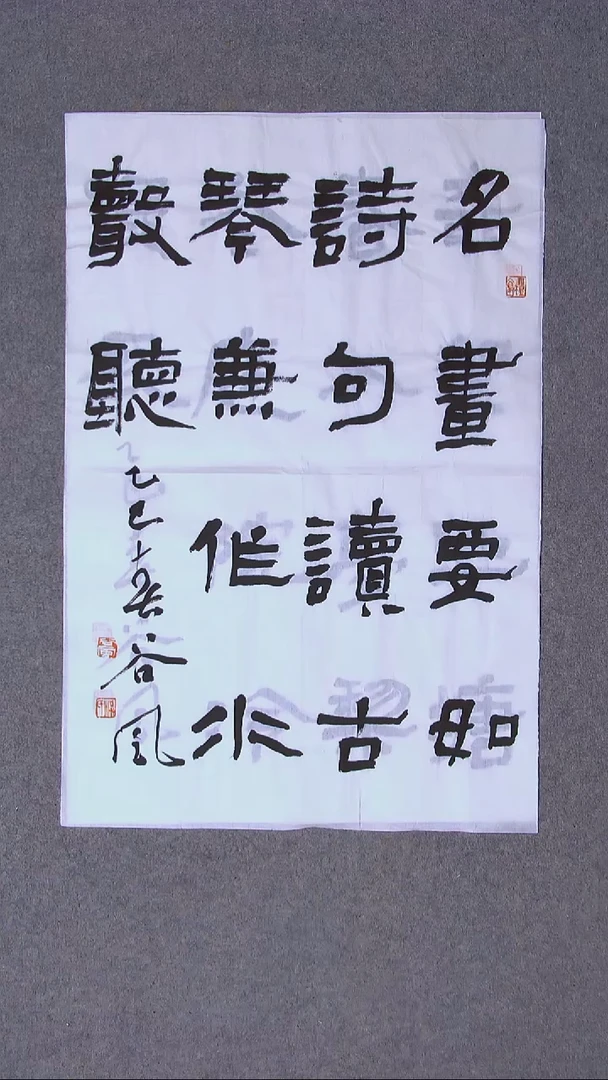 名畫要如
詩句讀古
琴兼作水
聲聽
乙巳春谷風